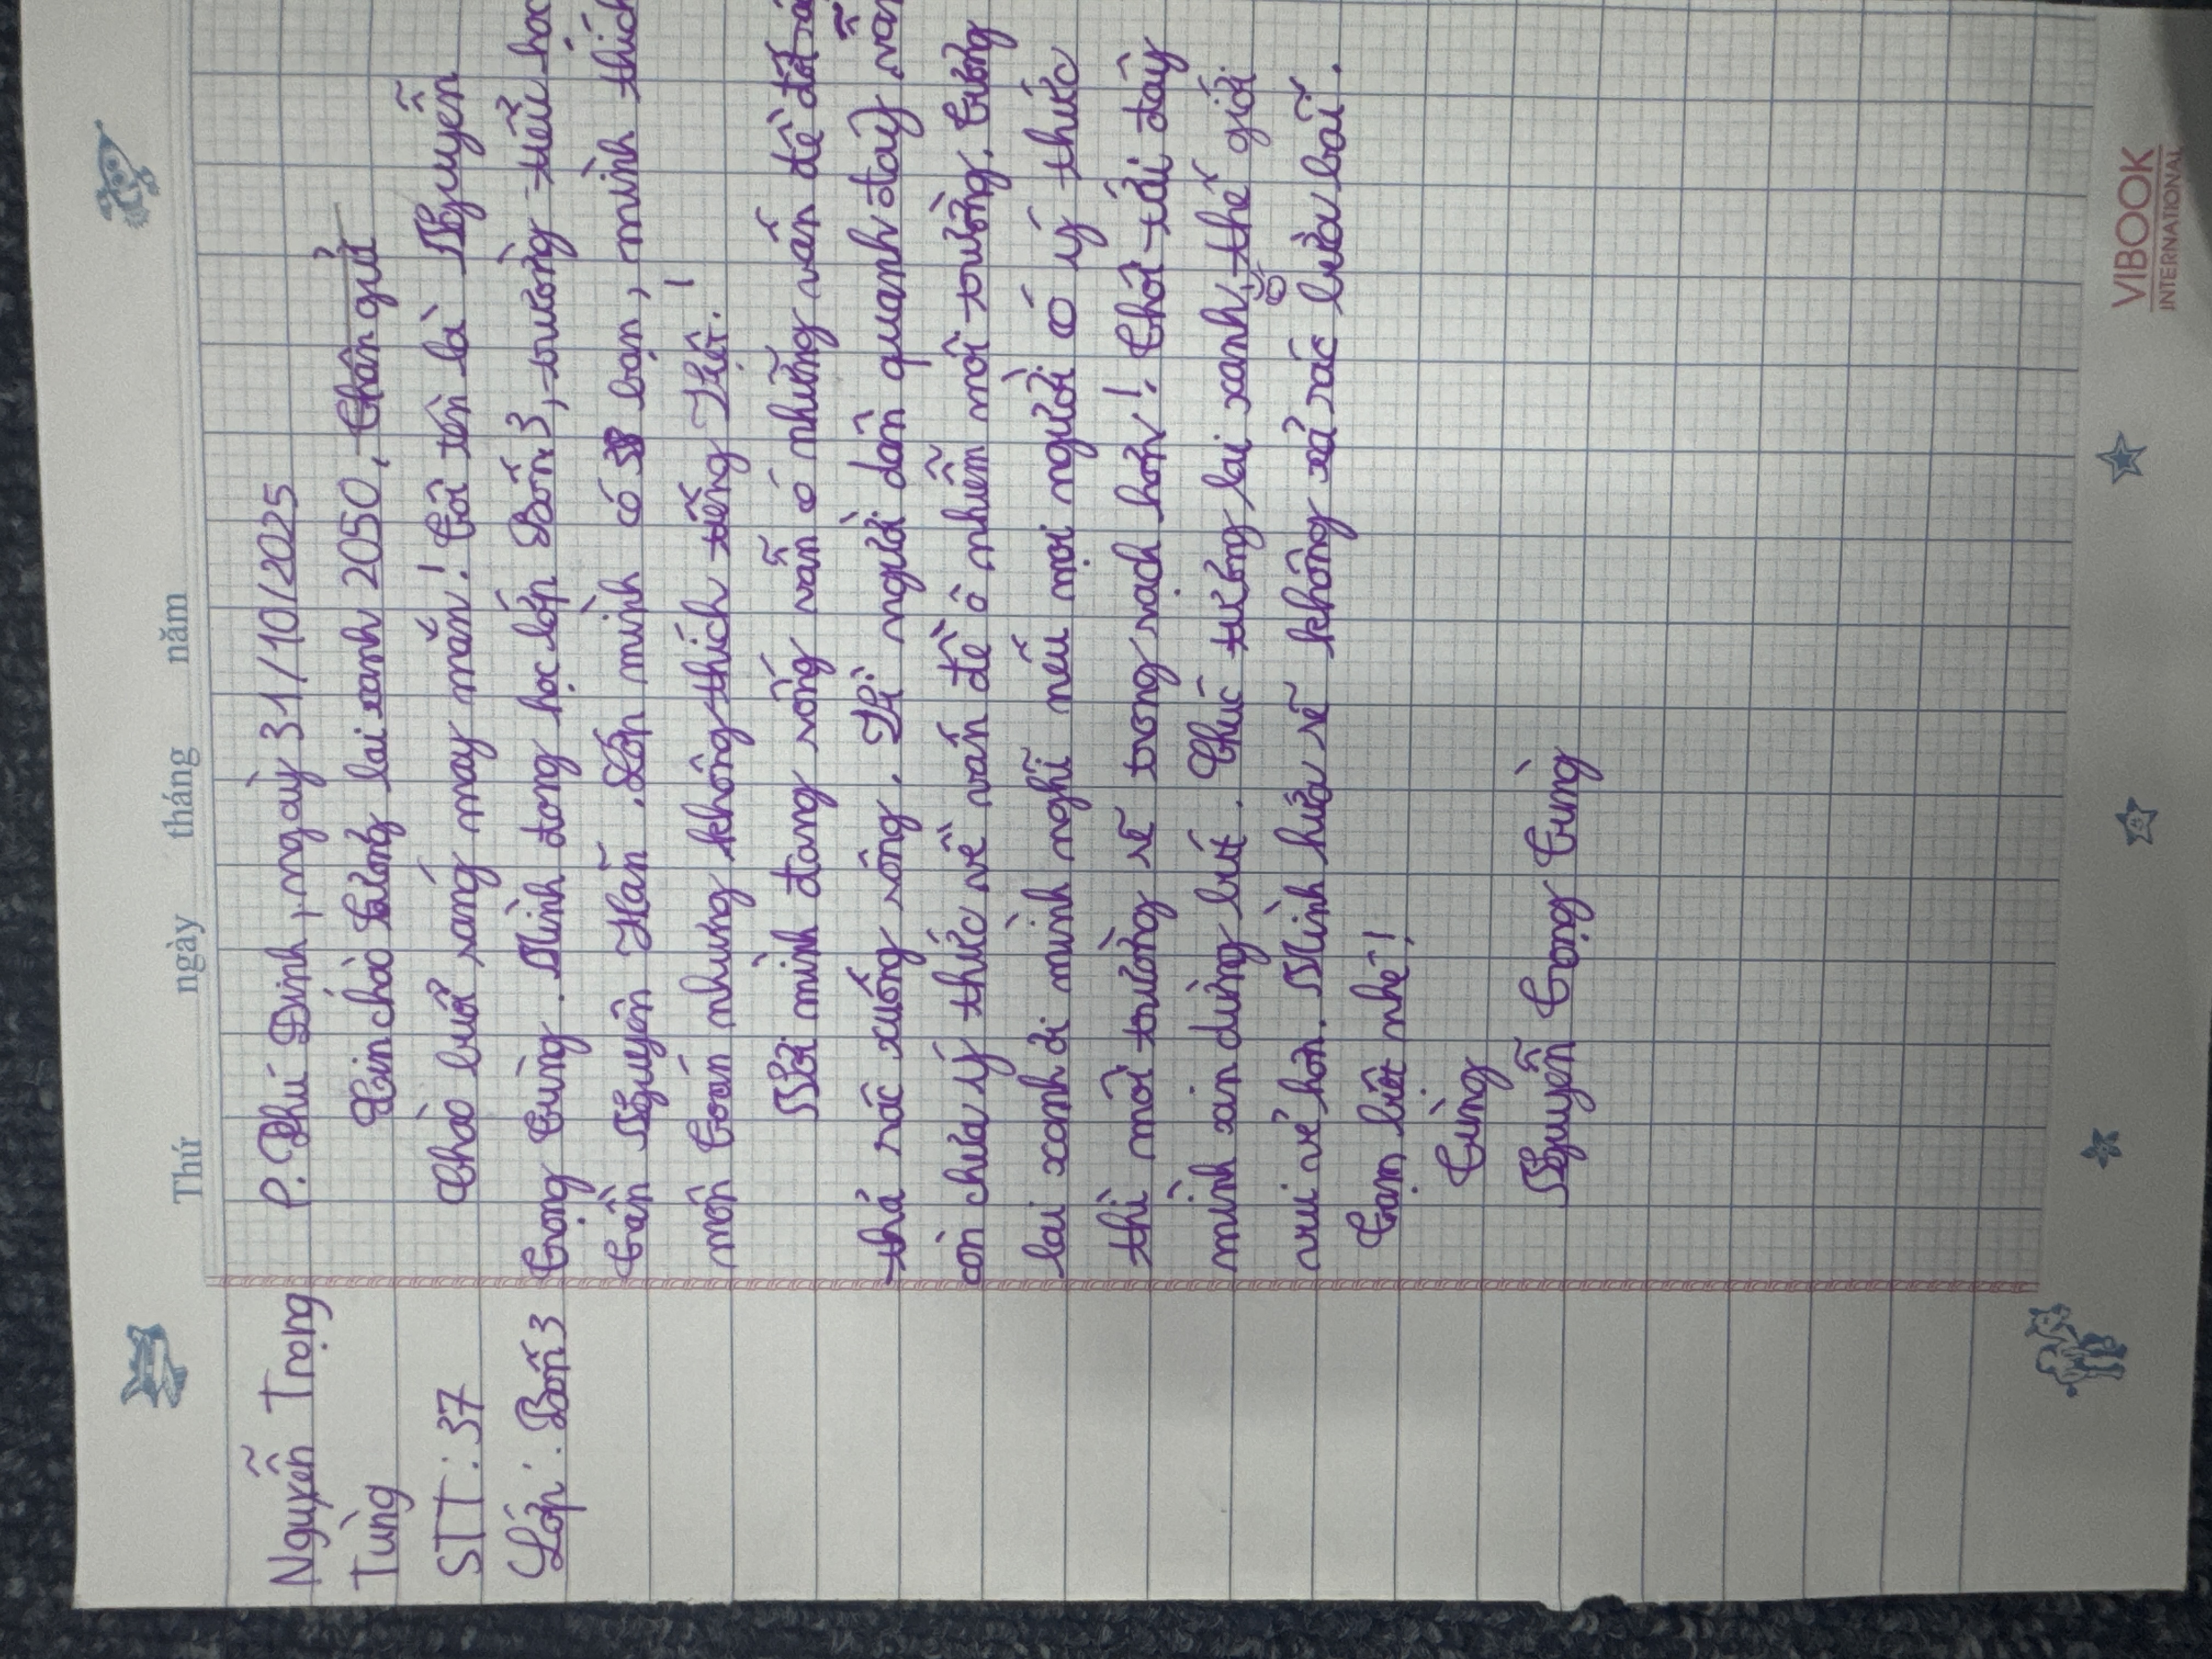 Thứ ngày tháng năm
Nguyễn Trọng
Tùng
STT: 37
Lớp: Bốn 3
P. Phú Định, ngày 31/10/2025
Xin chào tương lai xanh 2050, thân gửi
Chào buổi sáng may mắn! Tôi tên là Nguyễn
Trọng Tùng. Mình đang học lớp Bốn 3, trường tiểu học
Trần Nguyên Hãn. Lớp mình có bạn, mình thích
môn Toán nhưng không thích tiếng Việt!
Nơi mình đang sống vẫn có những vấn đề
thả rác xuống sông. Vì người dân quanh đây vẫn
còn chưa ý thức về vấn đề ô nhiễm môi trường. Tương
lai xanh ơi mình nghĩ nếu mọi người có ý thức
thì môi trường sẽ trong sạch hơn! Thôi tới đây
mình xin dừng bút. Chúc tương lai xanh, thế giới
vui vẻ hơn. Mình hứa sẽ không xả rác bừa bãi.
Tạm biệt nhé!
Tùng
Nguyễn Trọng Tùng
VIBOOK
INTERNATIONAL